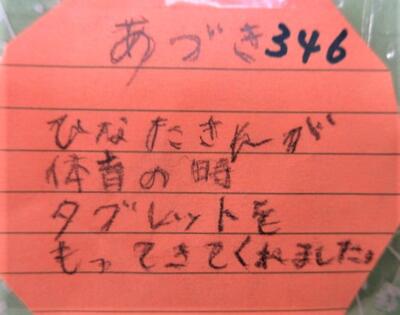 あづき346
ひなたさんが
体育の時
タブレットを
もってきてくれました。